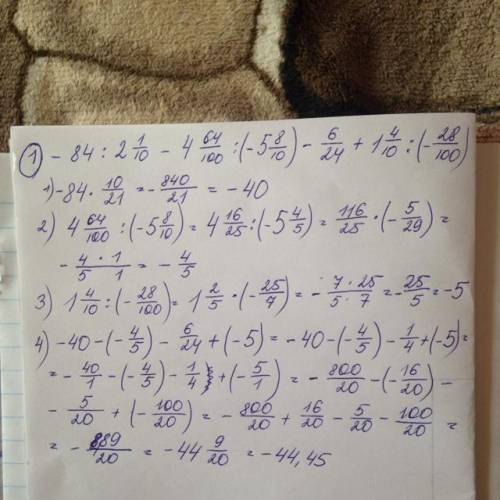 ① - 84 : 2 1/10 - 4 64/100 : (-5 8/10) - 6/24 + 1 4/10 : (-28/100)
1) -84 · 10/21 = -840/21 = -40
2) 4 64/100 : (-5 8/10) = 4 16/25 : (-5 4/5) = 116/25 · (-5/29) =
- 4/5 · 1/1 = - 4/5
3) 1 4/10 : (-28/100) = 1 2/5 · (-25/7) = - 7·25/5·7 = - 25/5 = -5
4) -40 - (-4/5) - 6/24 + (-5) = -40 - (-4/5) - 1/4 + (-5) =
= - 40/1 - (-4/5) - 1/4 + (-5/1) = - 800/20 - (-16/20) -
- 5/20 + (-100/20) = - 800/20 + 16/20 - 5/20 - 100/20 =
= - 889/20 = -44 9/20 = -44,45